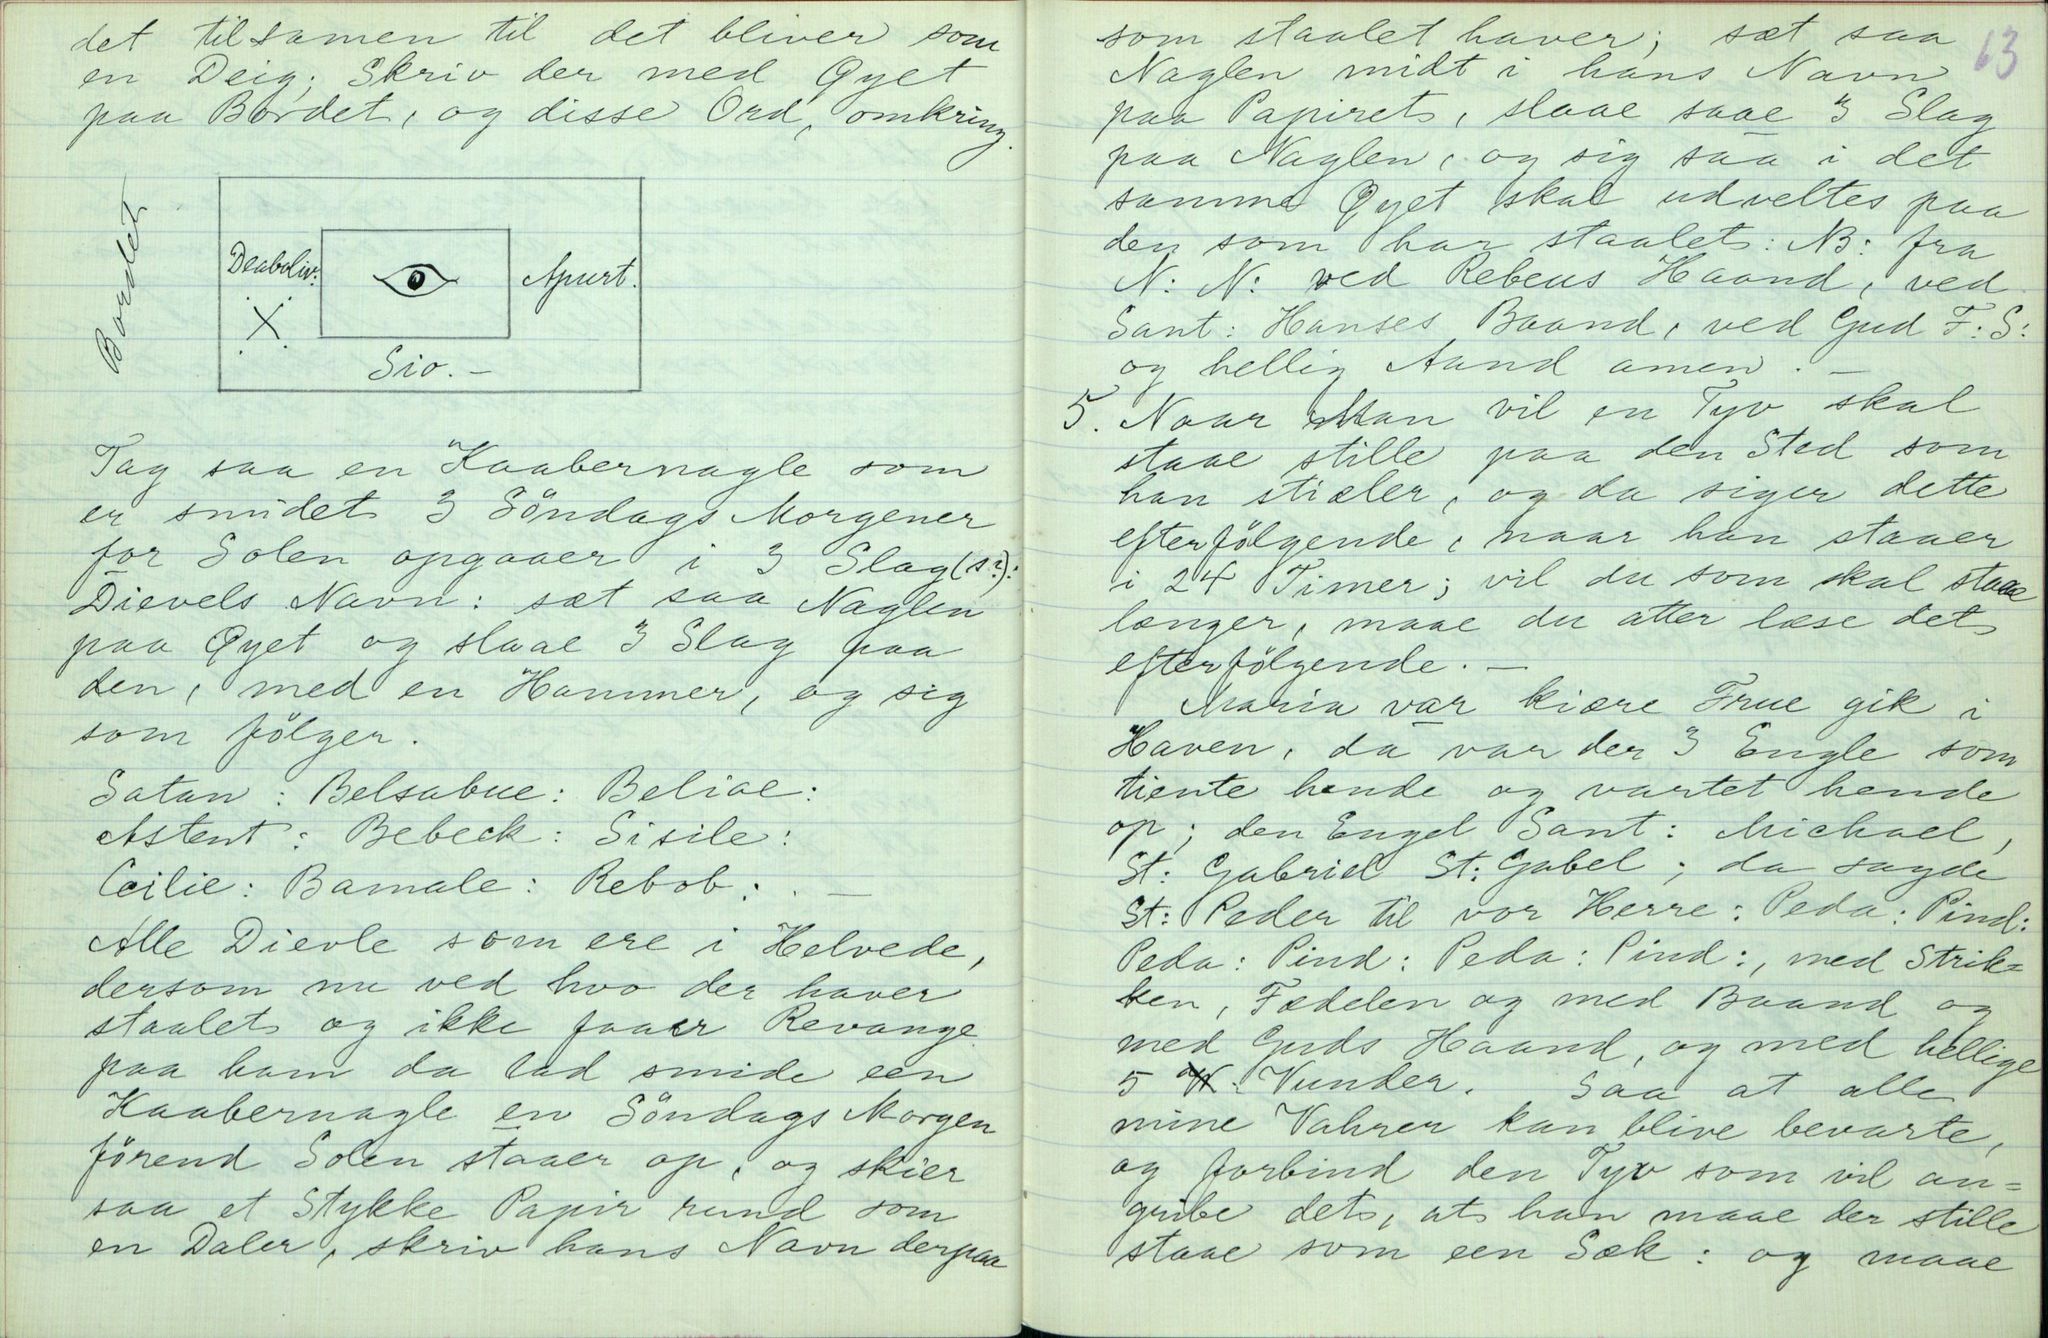 det tilsamen til det bliver som
en Deig; Skriv der med Øyet
paa Bordet, og disse Ord, omkring.
Bordet
Deaboliv:
Apurt.
X
Sio. –
Tag saa en Kaabernagle som
er smidet 3 Söndags Morgener
for Solen opgaaer i 3 Slag (s?):
Dievels Navn: sæt saa Naglen
paa Øyet og slaae 3 Slag paa
den, med en Hammer, og sig
som fölger.
Satan: Belsabue: Beliae:
Astent: Bebeck: Sisile:
Ceilie: Bamale: Rebob: . –
Alle Dievle som ere i Helvede,
dersom nu ved hvo der haver
staalet og ikke faaer Revange
paa ham da lad smide een
Kaabernagle en Söndags Morgen
förend Solen staaer op, og skier
saa et Stykke Papir rund som
en Daler, skriv hans Navn derpaa
63
som staalet haver; sæt saa
Naglen midt i hans Navn
paa Papiret, slaae saae 3 Slag
paa Naglen, og sig saa i det
samme Øyet skal udveltes paa
den som har staalet: NB: fra
N: N: ved Rebeus Haand, ved
Sant: Hanses Baand, ved Gud F: S:
og hellig Aand amen. –
5. Naar Man vil en Tyv skal
staae stille paa den Sted som
han stiæler, og da siger dette
efterfölgende, naar han staaer
i 24 Timer; vil du som skal staae
længer, maae du atter læse det
efterfölgende. –
Maria var kiære Frue gik i
Haven, da var der 3 Engle som
tiente hende og vartet hende
op; den Engel Sant: Michael,
St: Gabriel St: Gabel; da sagde
St: Peder til vor Herre: Peda: Pind:
Peda: Pind: Peda: Pind:, med Strik=
ken, Fædelen og med Baand og
med Guds Haand, og med hellige
5 Vunder. Saa at alle
mine Vahrer kan blive bevarte,
og forbind den Tyv som vil an=
gribe det, at han maae der stille
staae som een Sæk: og maae